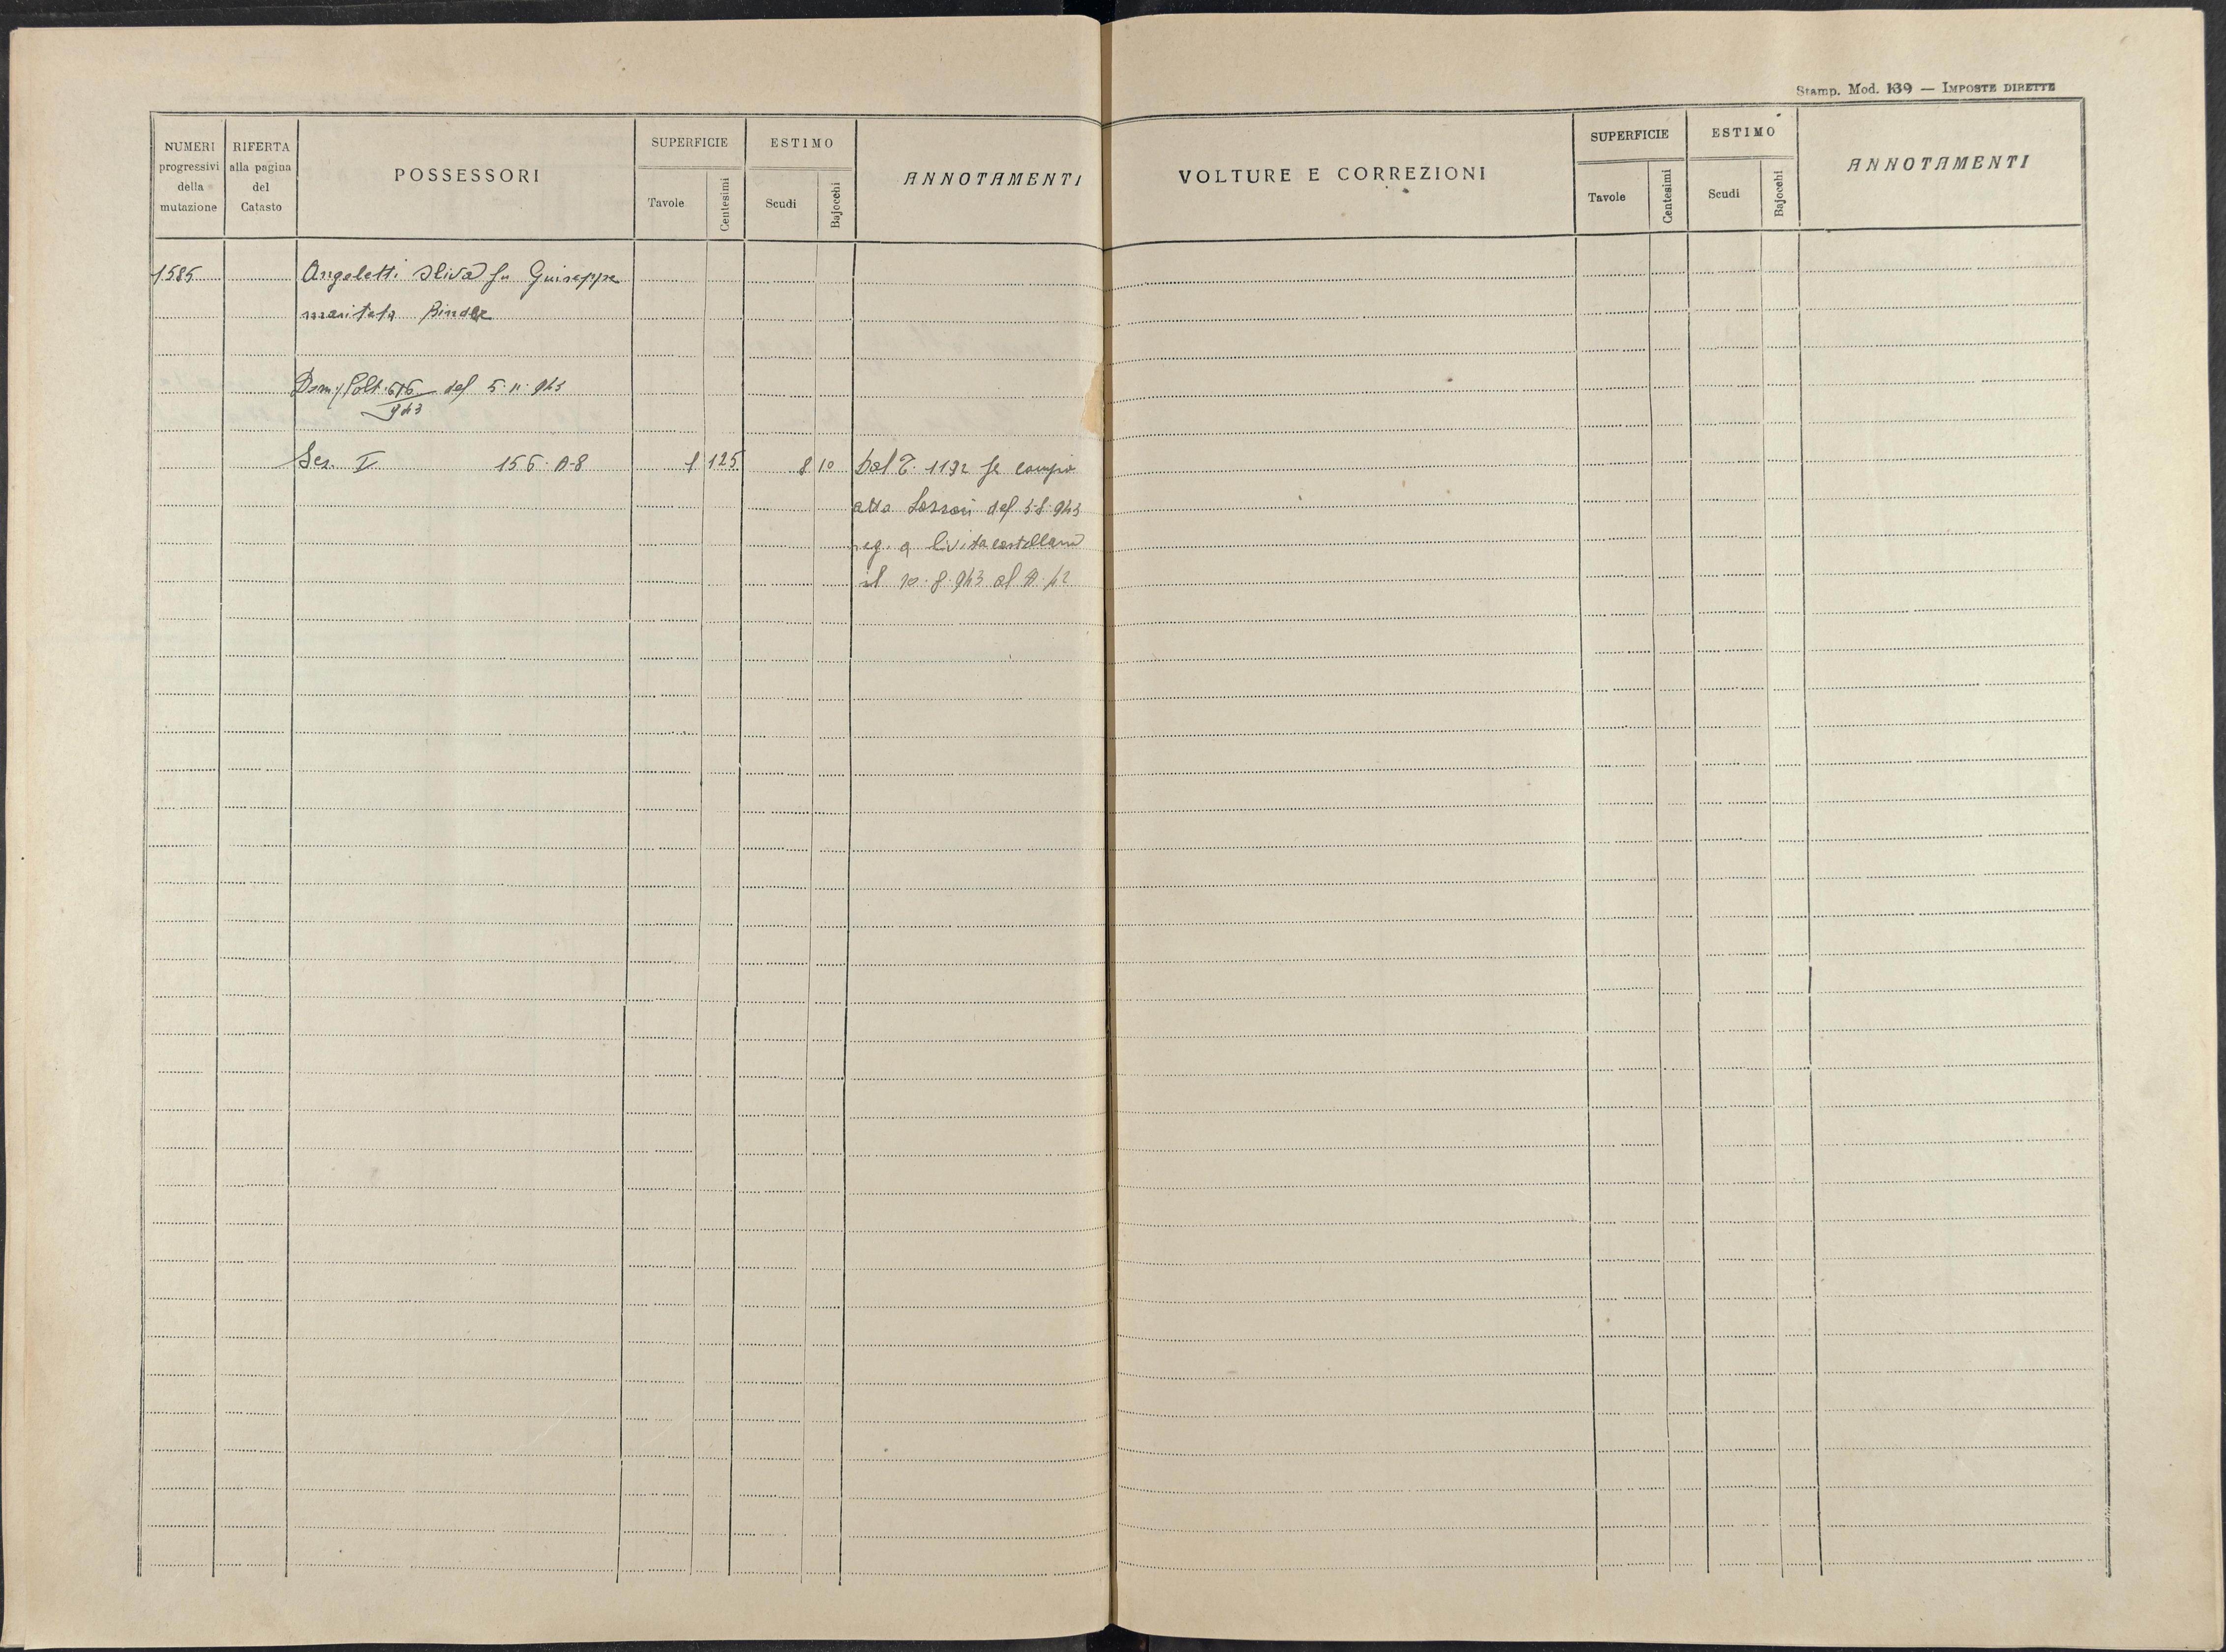 Stamp. Mod. 139 — IMPOSTE DIRETTE
NUMERI progressivi della mutazione
RIFERTA alla pagina del Catasto
POSSESSORI
SUPERFICIE
Tavole
Centesimi
ESTIMO
Scudi
Bajocchi
ANNOTAMENTI
VOLTURE E CORREZIONI
SUPERFICIE
Tavole
Centesimi
ESTIMO
Scudi
Bajocchi
ANNOTAMENTI
1585 Angeletti fu Giuseppe
maritata
del 5.11.943
943
Sez. I 156 1 125 8 10 Dal T. 1192 per
atto del 5.8.943
reg. a Civitacastellana
il 10.8.943 al N. 42